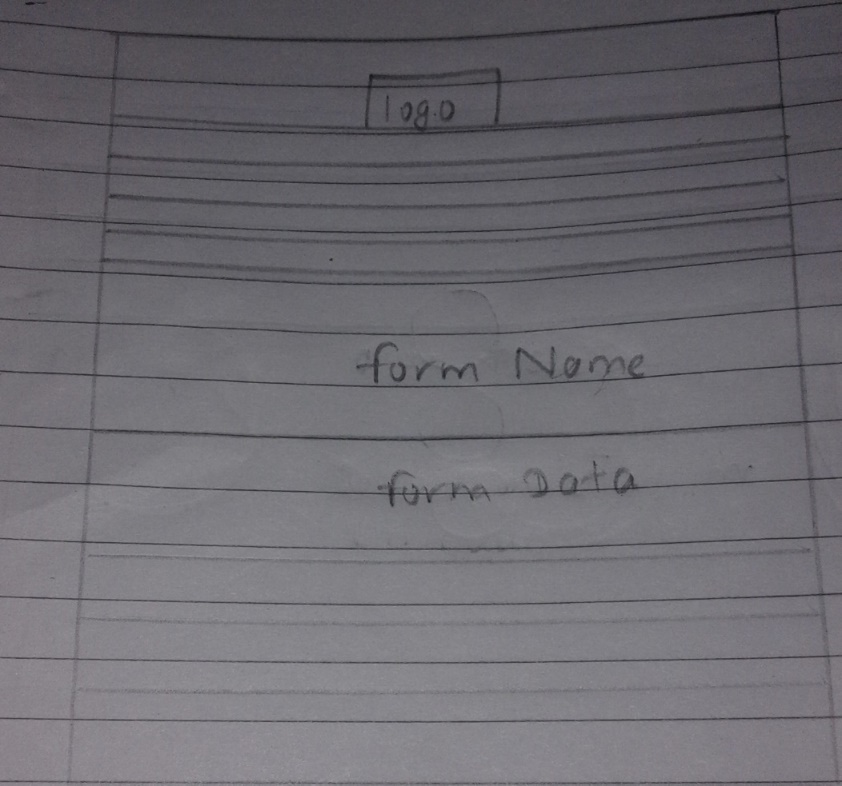 logo
form Name
form Data